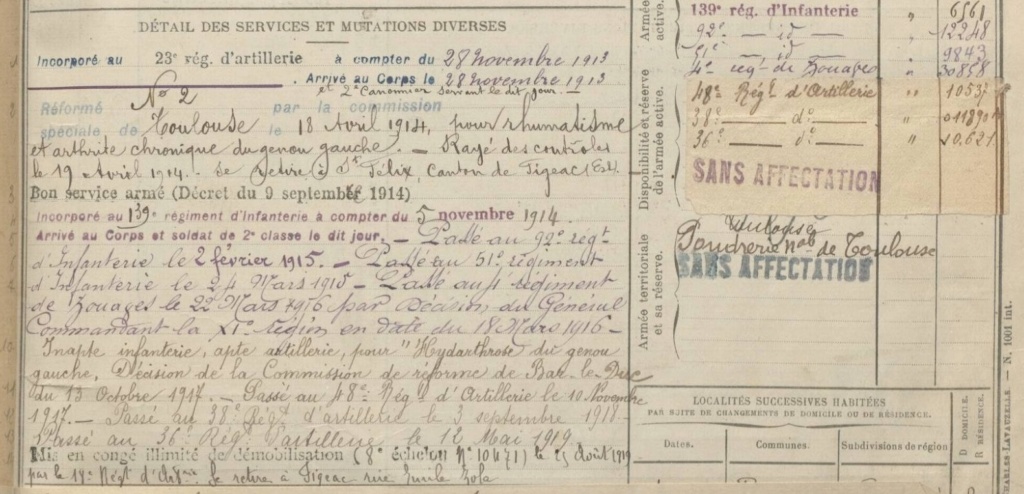 DÉTAIL DES SERVICES ET MUTATIONS DIVERSES
Incorporé au 23e rég. d'artillerie à compter du 28 novembre 1913
Arrivé au Corps le 28 novembre 1913
et 2e Canonnier servant le dit jour.
Réformé No 2 par la commission
spéciale de Toulouse le 18 Avril 1914, pour rhumatisme
et arthrite chronique du genou gauche. — Rayé des contrôles
le 19 Avril 1914. Se retire à St Félix, Canton de Figeac (
Bon service armé (Décret du 9 septembre 1914)
Incorporé au 139e régiment d'Infanterie à compter du 5 novembre 1914.
Arrivé au Corps et soldat de 2e classe le dit jour. — Passé au 92e régt
d'Infanterie le 2 février 1915. — Passé au 51e régiment
d'Infanterie le 24 Mars 1915 — Passé au 4e régiment
de Zouaves le 22 Mars 1916 par Décision du Général
Commandant la région en date du 18 Mars 1916 —
Inapte infanterie, apte artillerie, pour "Hydarthrose du genou
gauche, Décision de la Commission de réforme de Bar-le-Duc
du 13 Octobre 1917. — Passé au 48e Régt d'Artillerie le 10 Novembre
1917. — Passé au 38e Régt d'artillerie le 3 septembre 1918 —
Passé au 36e Rég d'artillerie le 12 Mai 1919.
Mis en congé illimité de démobilisation (8e échelon No 10471) le 25 Août 1919
par le Régt d'Artie, Se retire à Figeac rue Emile Zola
Armée active.
139e rég. d'Infanterie " 6561
92e — id — " 12248
51e — id " 9843
4e régt de Zouaves " 30858
Disponibilité et réserve de l'armée active.
48e Régt d'Artillerie " 10537
38e — do — "
36e — do " 10.621
SANS AFFECTATION
Armée territoriale et sa réserve.
Poudrerie Nale de Toulouse
SANS AFFECTATION
LOCALITÉS SUCCESSIVES HABITÉES
PAR SUITE DE CHANGEMENTS DE DOMICILE OU DE RÉSIDENCE.
Dates.
Communes.
Subdivisions de région
D. DOMICILE.
R. RÉSIDENCE.
CHARLES LAVAUZELLE — N. 1001 int.